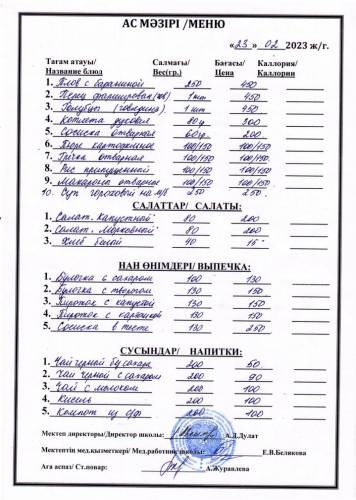 АС МӘЗІРІ /МЕНЮ
«23» 02 2023 ж/г.
Тағам атауы/ Салмағы/ Бағасы/ Каллория/
Название блюд Вес(гр.) Цена Каллории
1. Плов с бараниной 250 450
2. Перец фаршированный 1 шт 450
3. Голубцы (говядина) 1 шт 450
4. Котлета 80 300
5. Сосиска отварная 60гр. 200
6. Пюре картофельное 100/150 100/150
7. Гречка отварная 100/150 100/150
8. Рис припущенный 100/150 100/150
9. Макароны отварные 100/150 100/150
10. Суп гороховый на м/б 250 250
САЛАТТАР/ САЛАТЫ:
1. Салат. Капустный 80 200
2. Салат. Морковный 80 200
3. Хлеб белый 40 15
НАН ӨНІМДЕРІ/ ВЫПЕЧКА:
1. Булочка с сахаром 100 130
2. Булочка с творогом 130 150
3. Пирожок с капустой 130 150
4. Пирожок с картошкой 130 150
5. Сосиска в тесте 130 250
СУСЫНДАР/ НАПИТКИ:
1. Чай черный без сахара 200 50
2. Чай черный с сахаром 200 90
3. Чай с молоком 200 100
4. Кисель 200 100
5. Компот из с/ф 200 100
Мектеп директоры/Директор школы: А.Д.Дулат
Мектептің мед.қызметкері/ Мед.работник школы: Е.В.Белякова
Аға аспаз/ Ст.повар: А.Журавлева